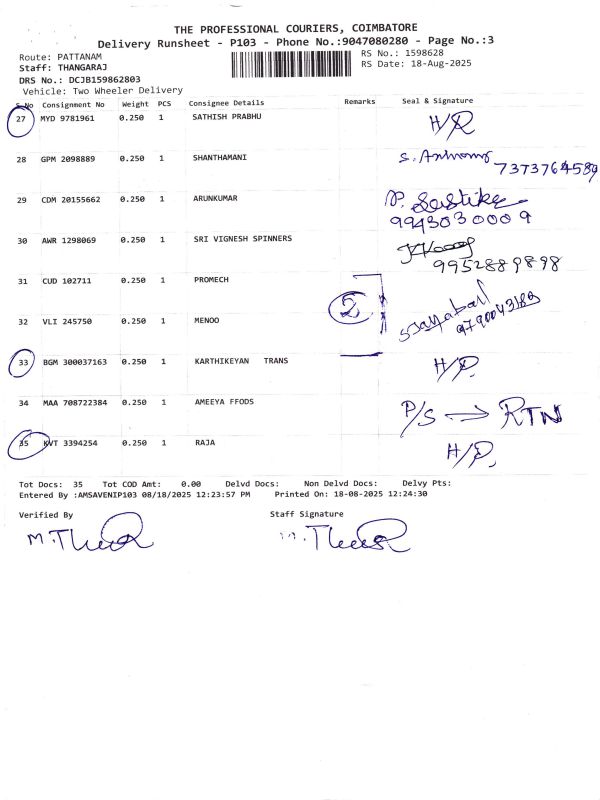 THE PROFESSIONAL COURIERS, COIMBATORE
Delivery Runsheet - P103 - Phone No.:9047080280 - Page No.:3
Route: PATTANAM
RS No.: 1598628
Staff: THANGARAJ
RS Date: 18-Aug-2025
DRS No.: DCJB159862803
Vehicle: Two Wheeler Delivery
S.No Consignment No Weight PCS Consignee Details Remarks Seal & Signature
27 MYD 9781961 0.250 1 SATHISH PRABHU H/R
28 GPM 2098889 0.250 1 SHANTHAMANI 7373764589
29 CDM 20155662 0.250 1 ARUNKUMAR 9943030009
30 AWR 1298069 0.250 1 SRI VIGNESH SPINNERS 9952889898
31 CUD 102711 0.250 1 PROMECH 2
32 VLI 245750 0.250 1 MENOO
33 BGM 300037163 0.250 1 KARTHIKEYAN TRANS
34 MAA 708722384 0.250 1 AMEEYA FFODS P/S → RTN
35 KVT 3394254 0.250 1 RAJA
Tot Docs: 35 Tot COD Amt: 0.00 Delvd Docs: Non Delvd Docs: Delvy Pts:
Entered By :AMSAVENIP103 08/18/2025 12:23:57 PM Printed On: 18-08-2025 12:24:30
Verified By Staff Signature